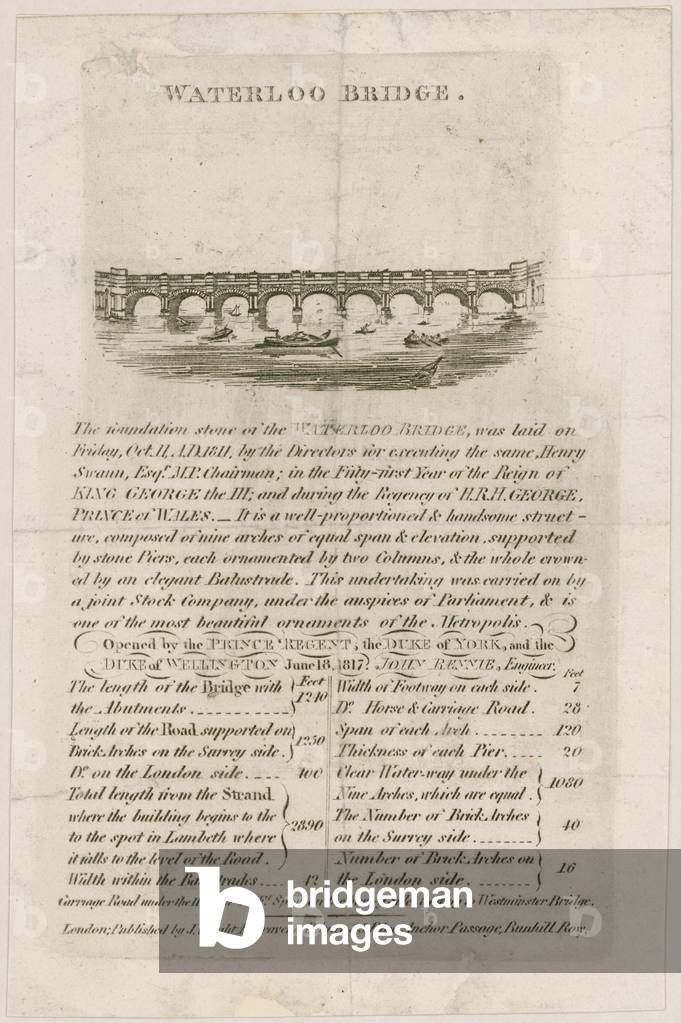 WATERLOO BRIDGE.
The foundation stone of the WATERLOO BRIDGE, was laid on
Friday, Oct. 11, A.D. 1811, by the Directors for executing the same, Henry
Swann, Esqr. M.P. Chairman; in the Fifty-first Year of the Reign of
KING GEORGE the III; and during the Regency of H.R.H. GEORGE,
PRINCE of WALES. _ It is a well-proportioned & handsome struct-
ure, composed of nine arches of equal span & elevation, supported
by stone Piers, each ornamented by two Columns, & the whole crown-
ed by an elegant Balustrade. This undertaking was carried on by
a joint Stock Company, under the auspices of Parliament, & is
one of the most beautiful ornaments of the Metropolis.
Opened by the PRINCE REGENT, the DUKE of YORK, and the
DUKE of WELLINGTON June 18, 1817. JOHN RENNIE, Engineer.
The length of the Bridge with
the Abutments Feet 1240
Length of the Road supported on
Brick Arches on the Surrey side. 1250
Do. on the London side. 400
Total length from the Strand
where the building begins to the
to the spot in Lambeth where
it falls to the level of the Road. 2890
Width within the Balustrades 42
Feet
Width of Footway on each side. 7
Do. Horse & Carriage Road. 28
Span of each Arch 120
Thickness of each Pier. 20
Clear Water-way under the
Nine Arches, which are equal. 1080
The Number of Brick Arches
on the Surrey side 40
Number of Brick Arches on
the London side. 16
Carriage Road under the Westminster Bridge.
London; Published by J. Anchor Passage, Bunhill Row.
b bridgeman
images